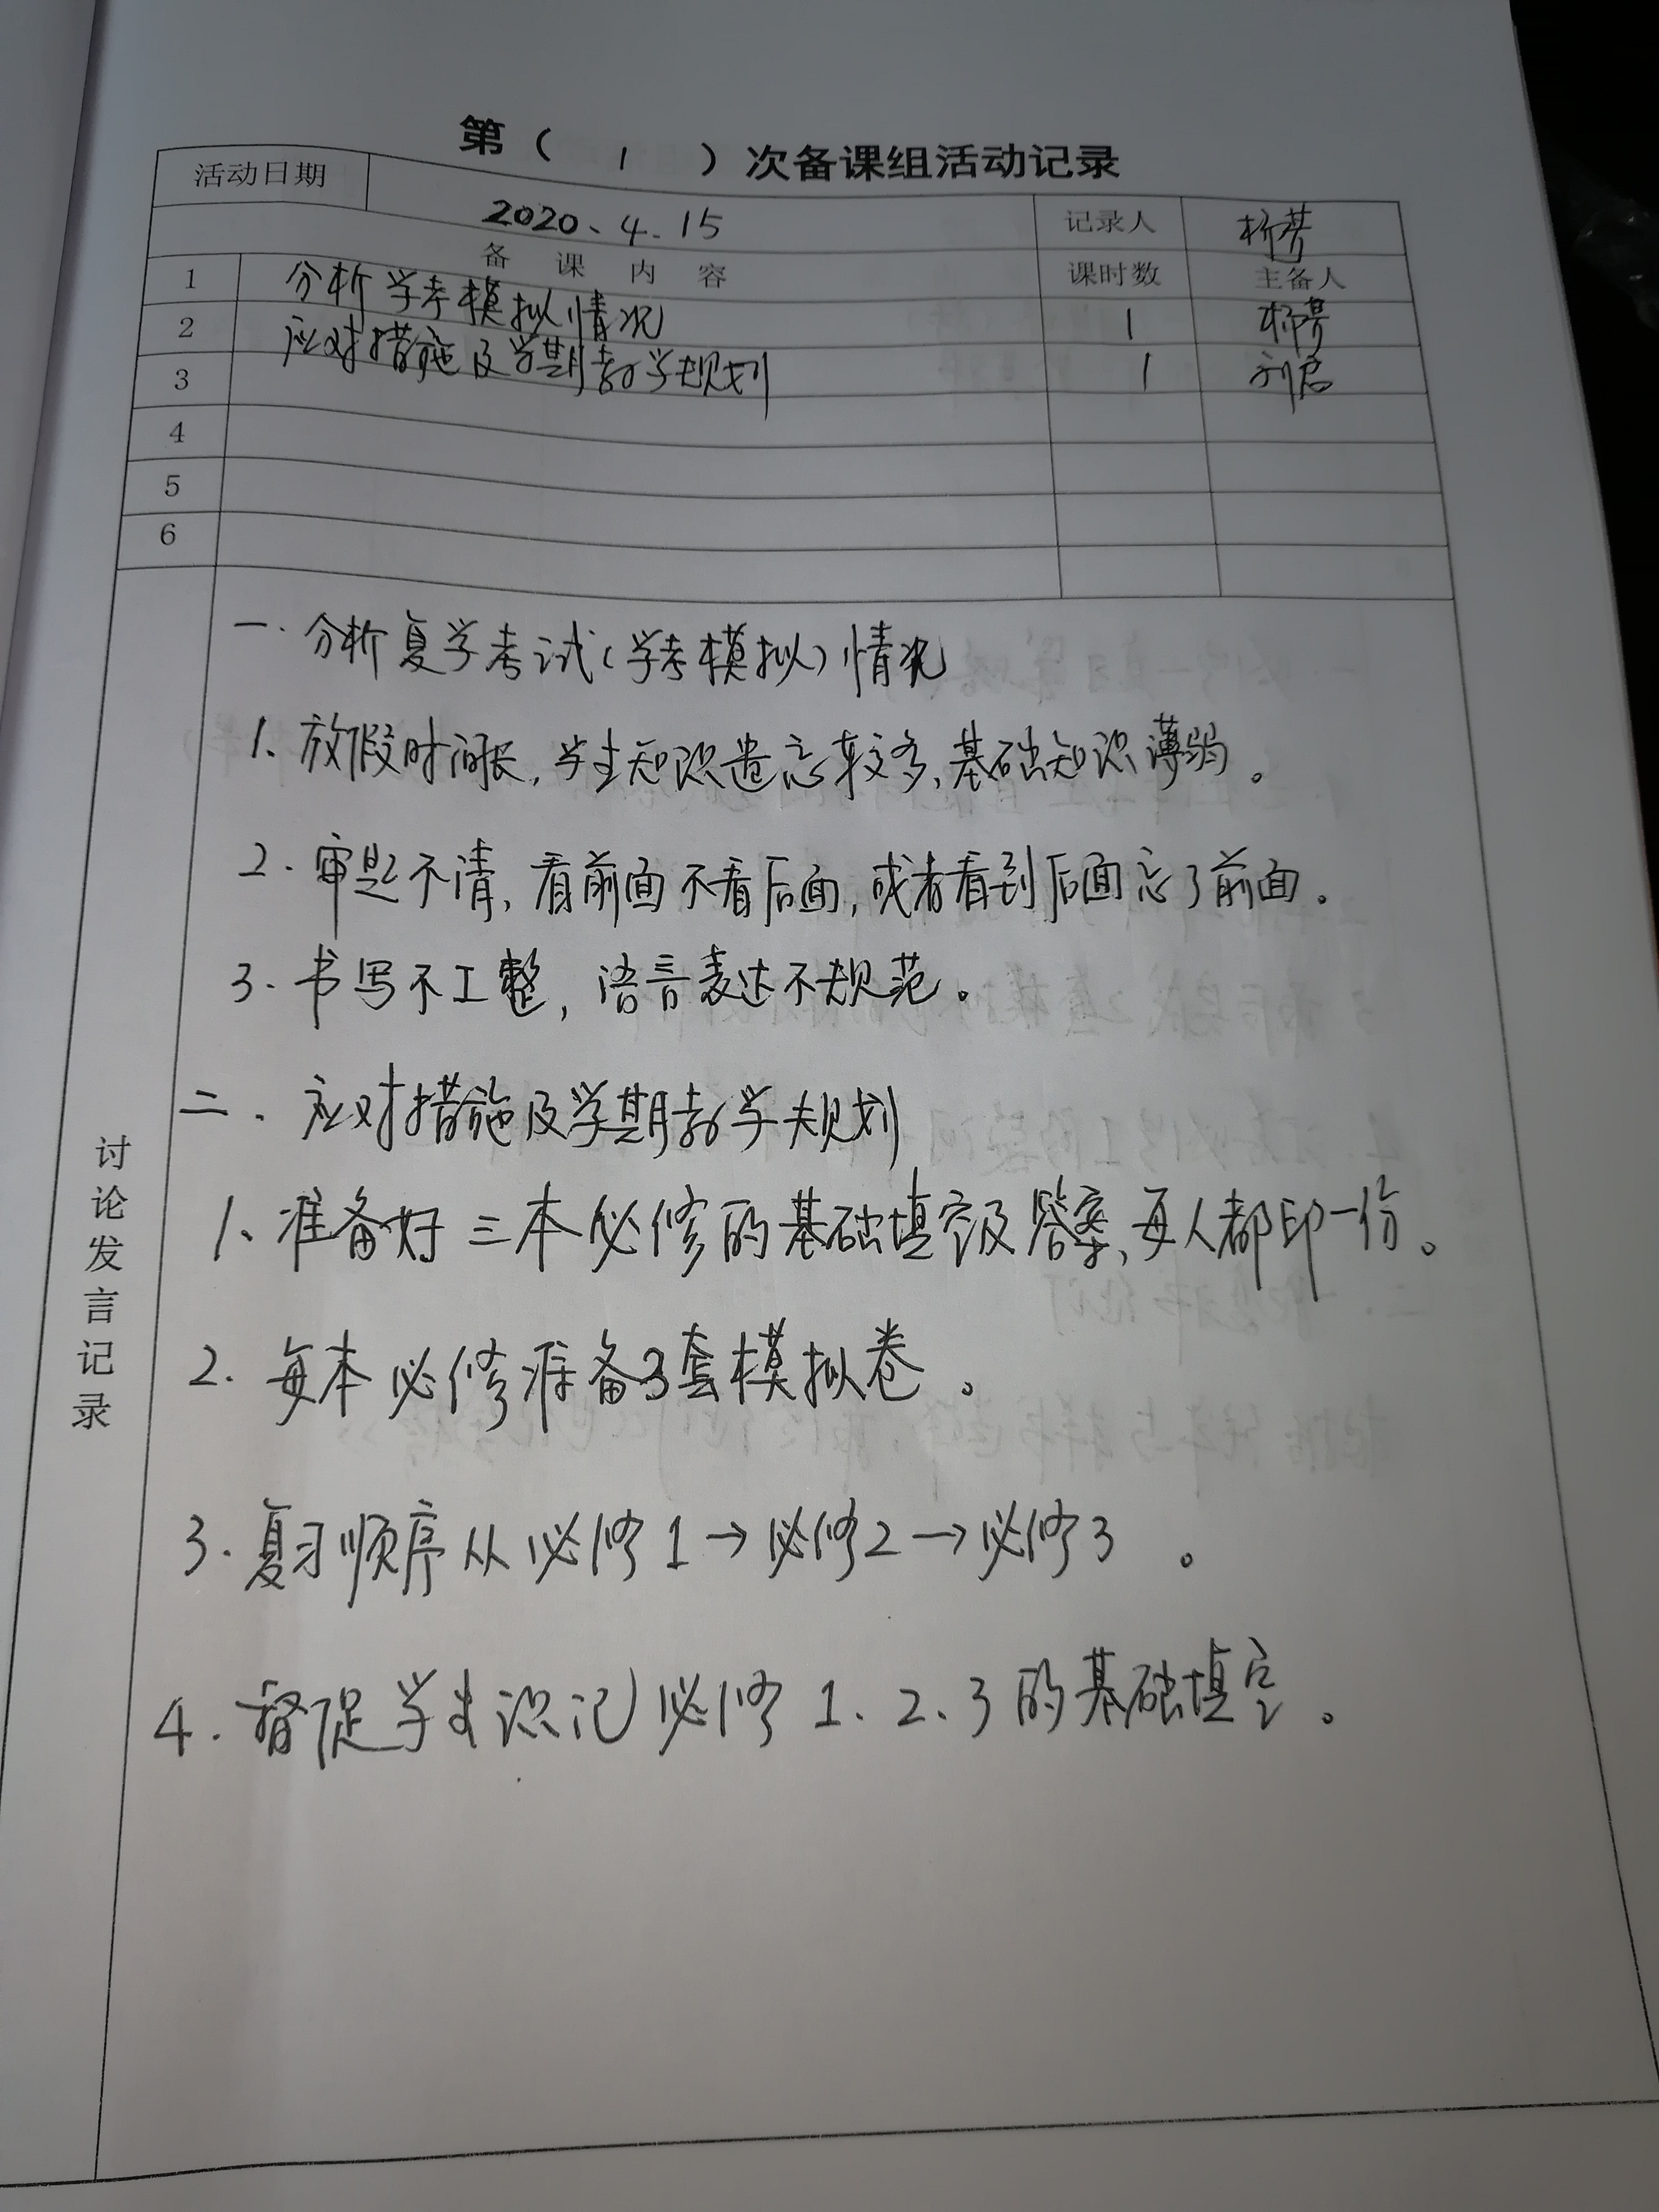 第（ 1 ）次备课组活动记录
活动日期 2020.4.15 记录人
备课内容 课时数 主备人
1 分析学考模拟情况 1
2 应对措施及学期教学规划 1
3
4
5
6
讨论发言记录
一.分析复学考试(学考模拟)情况
1、放假时间长,学生知识遗忘较多,基础知识薄弱。
2.审题不清,看前面不看后面,或者看到后面忘了前面.
3.书写不工整,语言表达不规范。
二.应对措施及学期教学规划
1、准备好三本必修的基础填空及答案,每人都印一份。
2.每本必修准备3套模拟卷。
3.复习顺序从必修1→必修2→必修3。
4.督促学生识记必修1、2、3的基础填空。